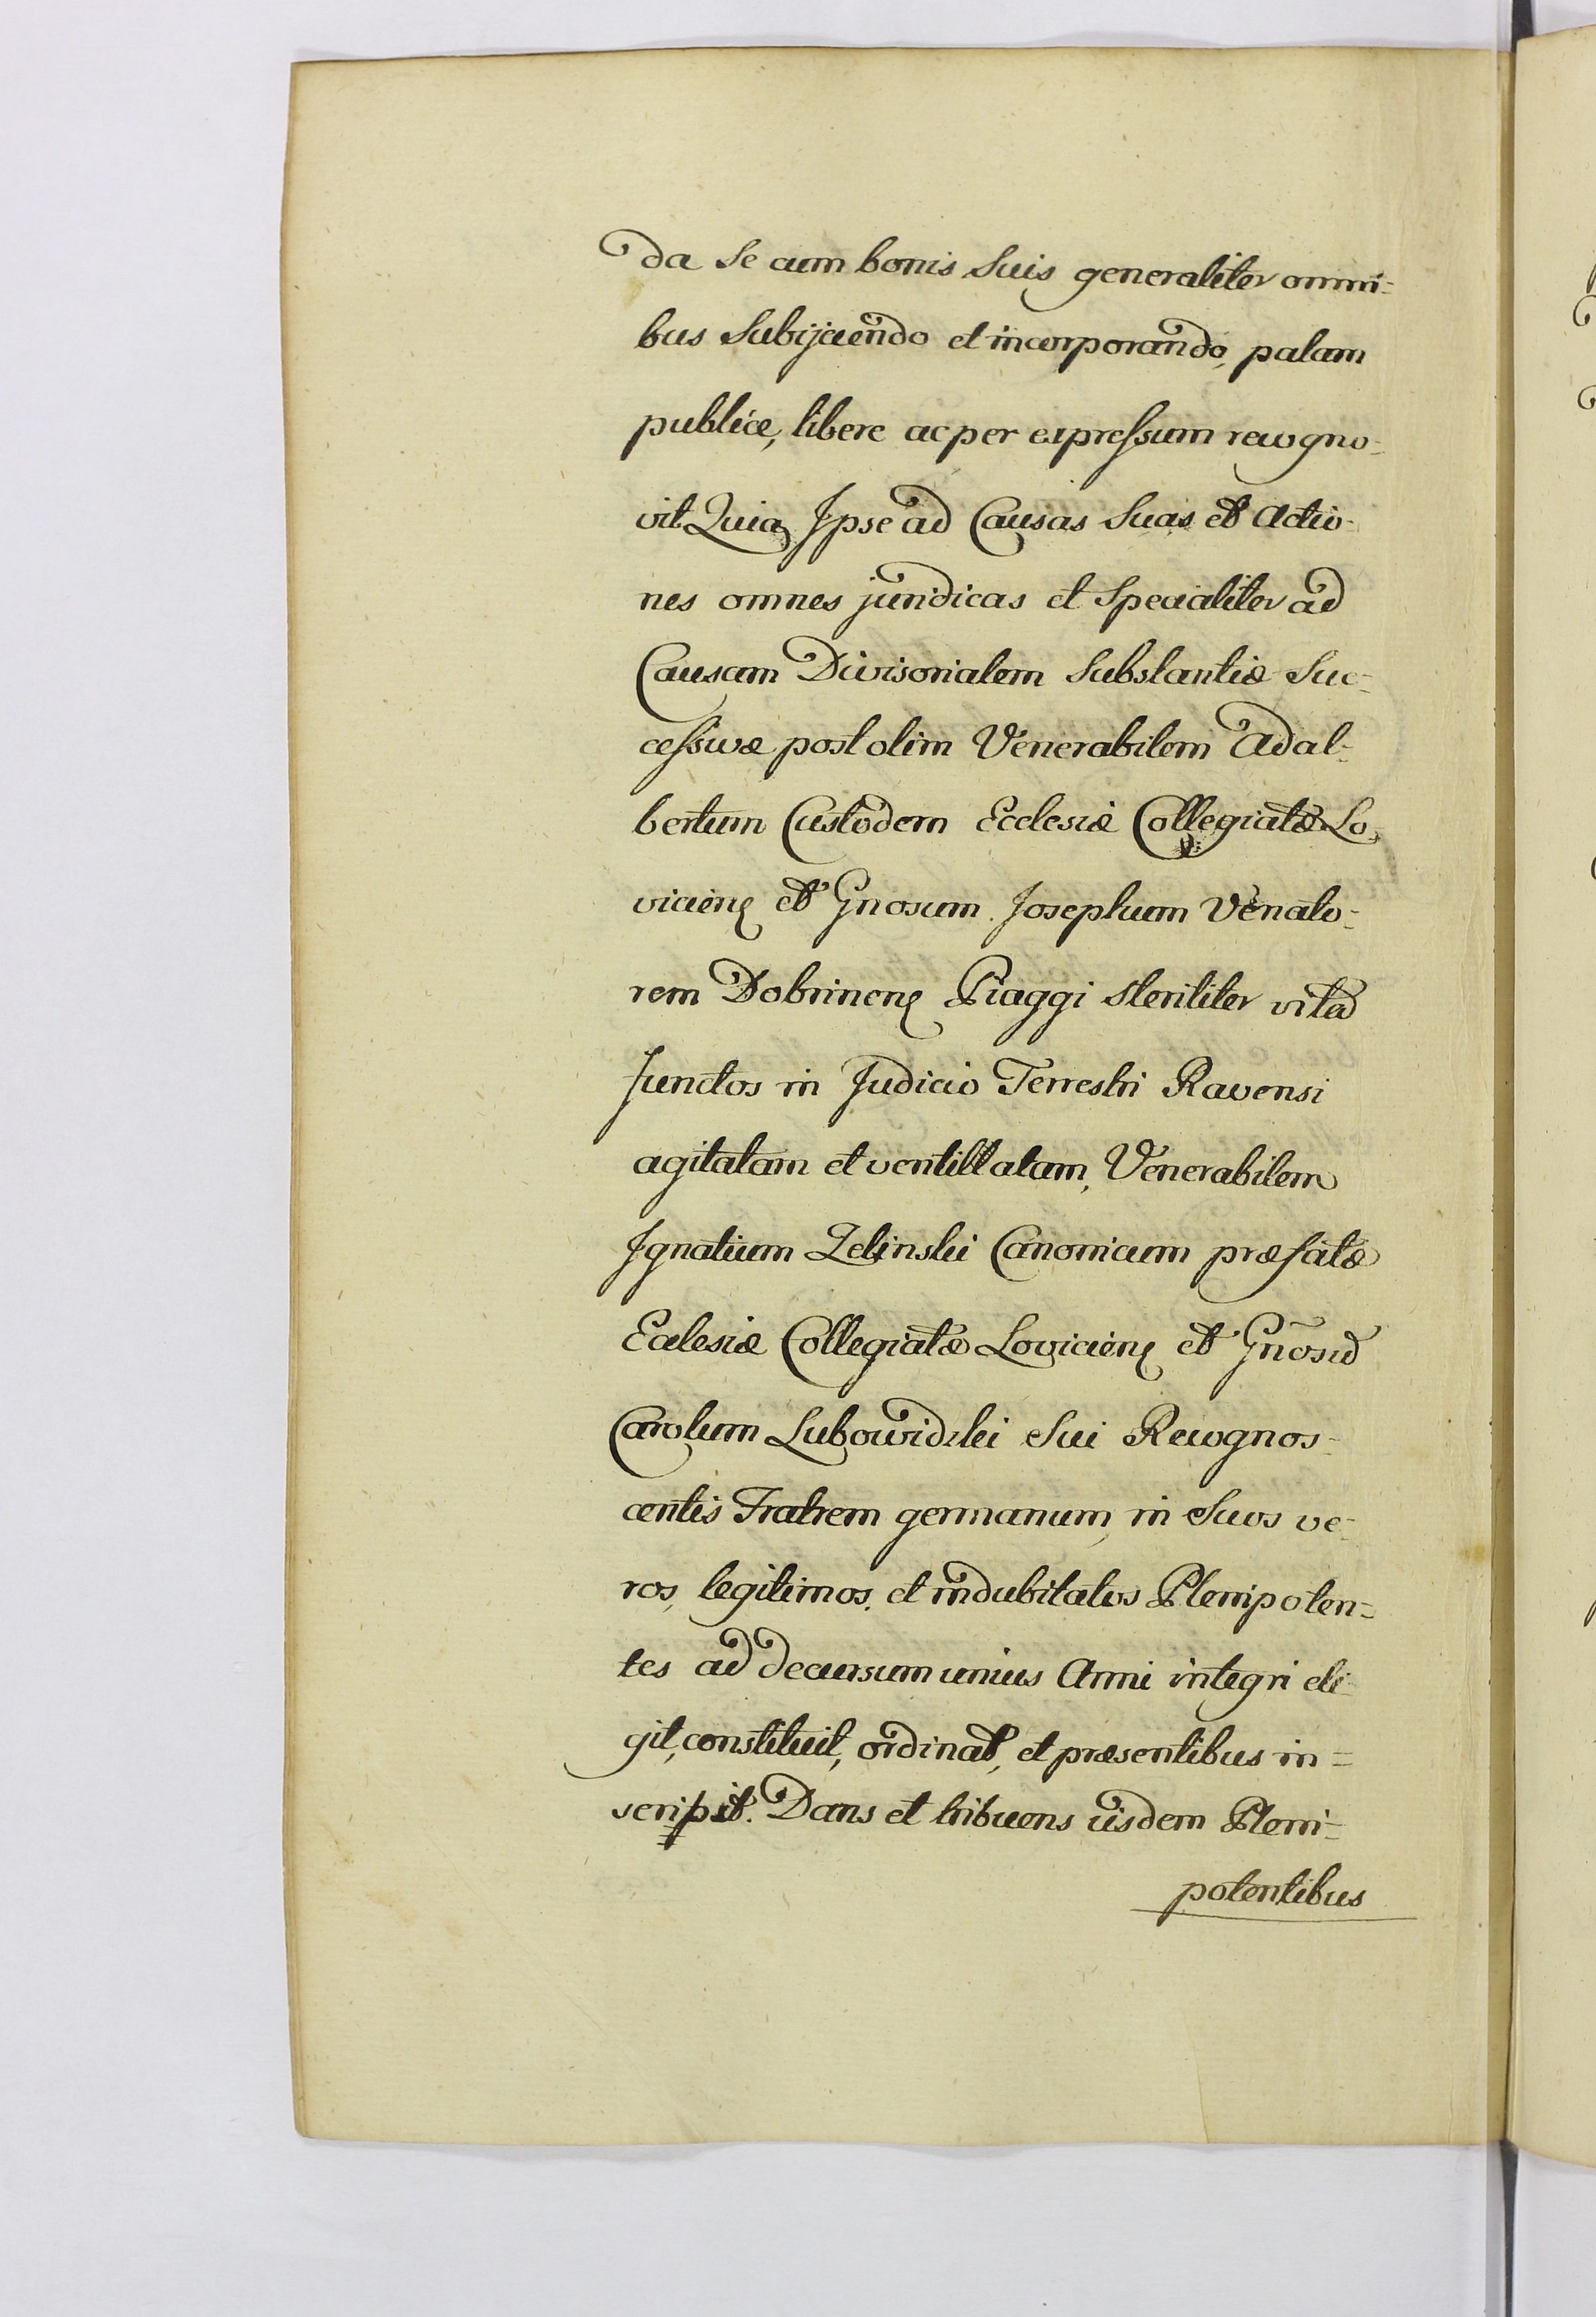 da se cum bonis suis generaliter omni=
bus subijciendo et incorporando, palam
publice, libere ac per expressum recogno=
vit. Quia Ipse ad Causas suas et Actio=
nes omnes juridicas et specialiter ad
Causam Divisorialem substantiæ suc=
cessivæ post olim Venerabilem Adal=
bertum Custodem Ecclesiæ Collegiatæ Lo=
viciens et Gnosum Josephum Venato=
rem Dobrinens Piaggi steriliter vita
functos in Judicio Terrestri Ravensi
agitatam et ventillatam, Venerabilem
Ignatium Zelinski Canonicum præfatæ
Ecclesiæ Collegiatæ Loviciens et Gnosū
Carolum Lubowidzki sui Recognos=
centis Fratrem germanum, in suos ve=
ros, legitimos, et indubitatos Plenipoten=
tes ad decursum unius Anni integri eli=
git, constituit, ordinat, et præsentibus in=
scripsit. Dans et tribuens iisdem Pleni=
potentibus